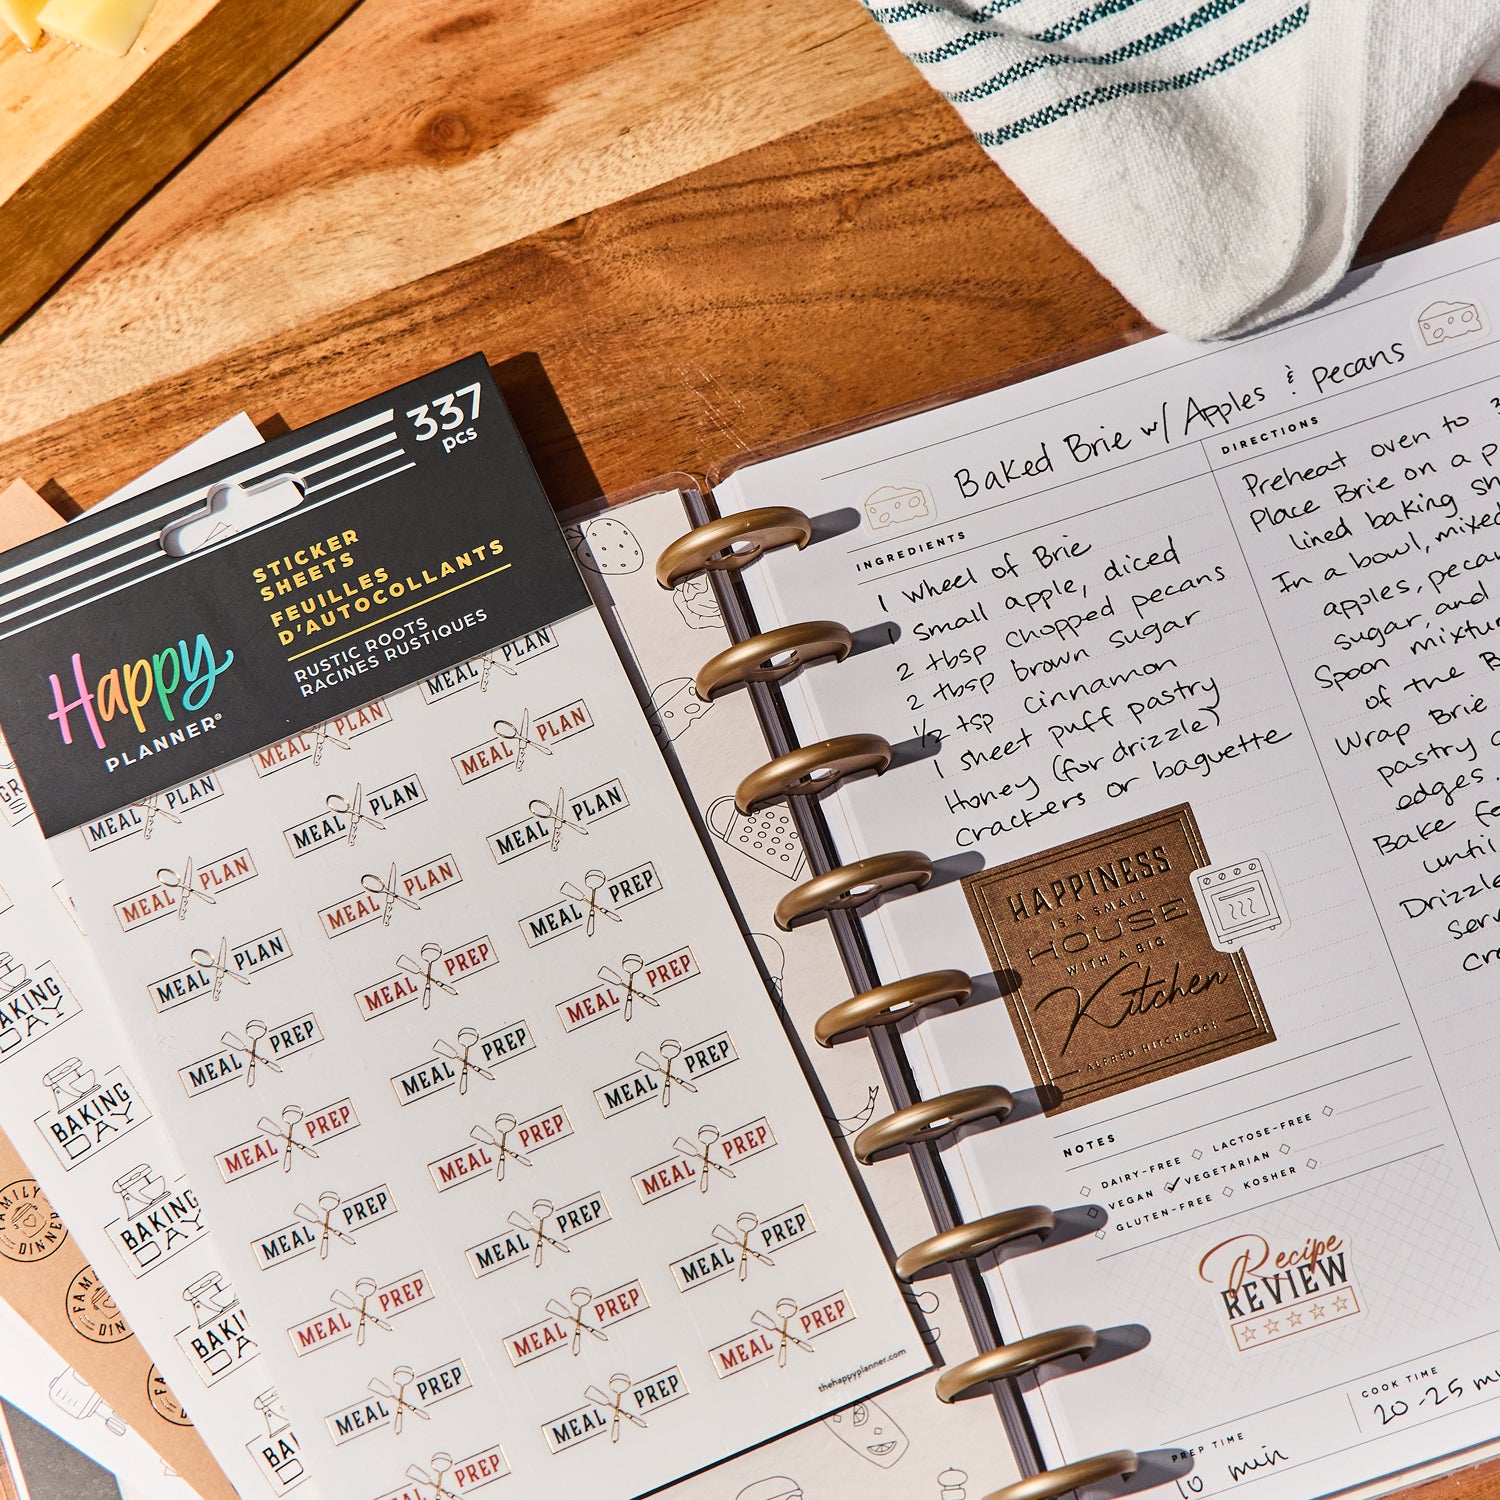 337
pcs
STICKER
SHEETS
FEUILLES
D'AUTOCOLLANTS
RUSTIC ROOTS
RACINES RUSTIQUES
Happy
PLANNER®
MEAL PLAN
MEAL PLAN
MEAL PLAN
MEAL PLAN
MEAL PLAN
MEAL PLAN
MEAL PLAN
MEAL PLAN
MEAL PREP
MEAL PLAN
MEAL PREP
MEAL PREP
MEAL PREP
MEAL PREP
MEAL PREP
MEAL PREP
MEAL PREP
MEAL PREP
MEAL PREP
MEAL PREP
MEAL PREP
MEAL PREP
MEAL PREP
MEAL PREP
MEAL PREP
MEAL PREP
MEAL PREP
thehappyplanner.com
BAKING
DAY
BAKING
DAY
BAKING
DAY
FAMILY
DINNER
Baked Brie w/ Apples & pecans
INGREDIENTS
1 wheel of Brie
1 small apple, diced
2 tbsp chopped pecans
2 tbsp brown sugar
1/2 tsp cinnamon
1 sheet puff pastry
Honey (for drizzle)
Crackers or baguette
HAPPINESS
IS A SMALL
HOUSE
WITH A BIG
Kitchen
- ALFRED HITCHCOCK -
DIRECTIONS
Preheat oven to
Place Brie on a
lined baking
In a bowl, mixed
apples,
sugar, and
Spoon
of the
Wrap Brie
pastry
edges.
Bake
until
Drizzle
NOTES
DAIRY-FREE LACTOSE-FREE
VEGAN VEGETARIAN
GLUTEN-FREE KOSHER
Recipe
REVIEW
PREP TIME
10 min
COOK TIME
20-25